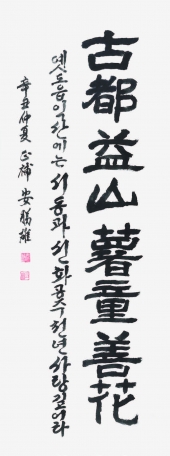 古都益山薯童善花
옛도읍이운에는서동과선화공주천년사랑깊어라
辛丑仲夏 正補 安勝雄